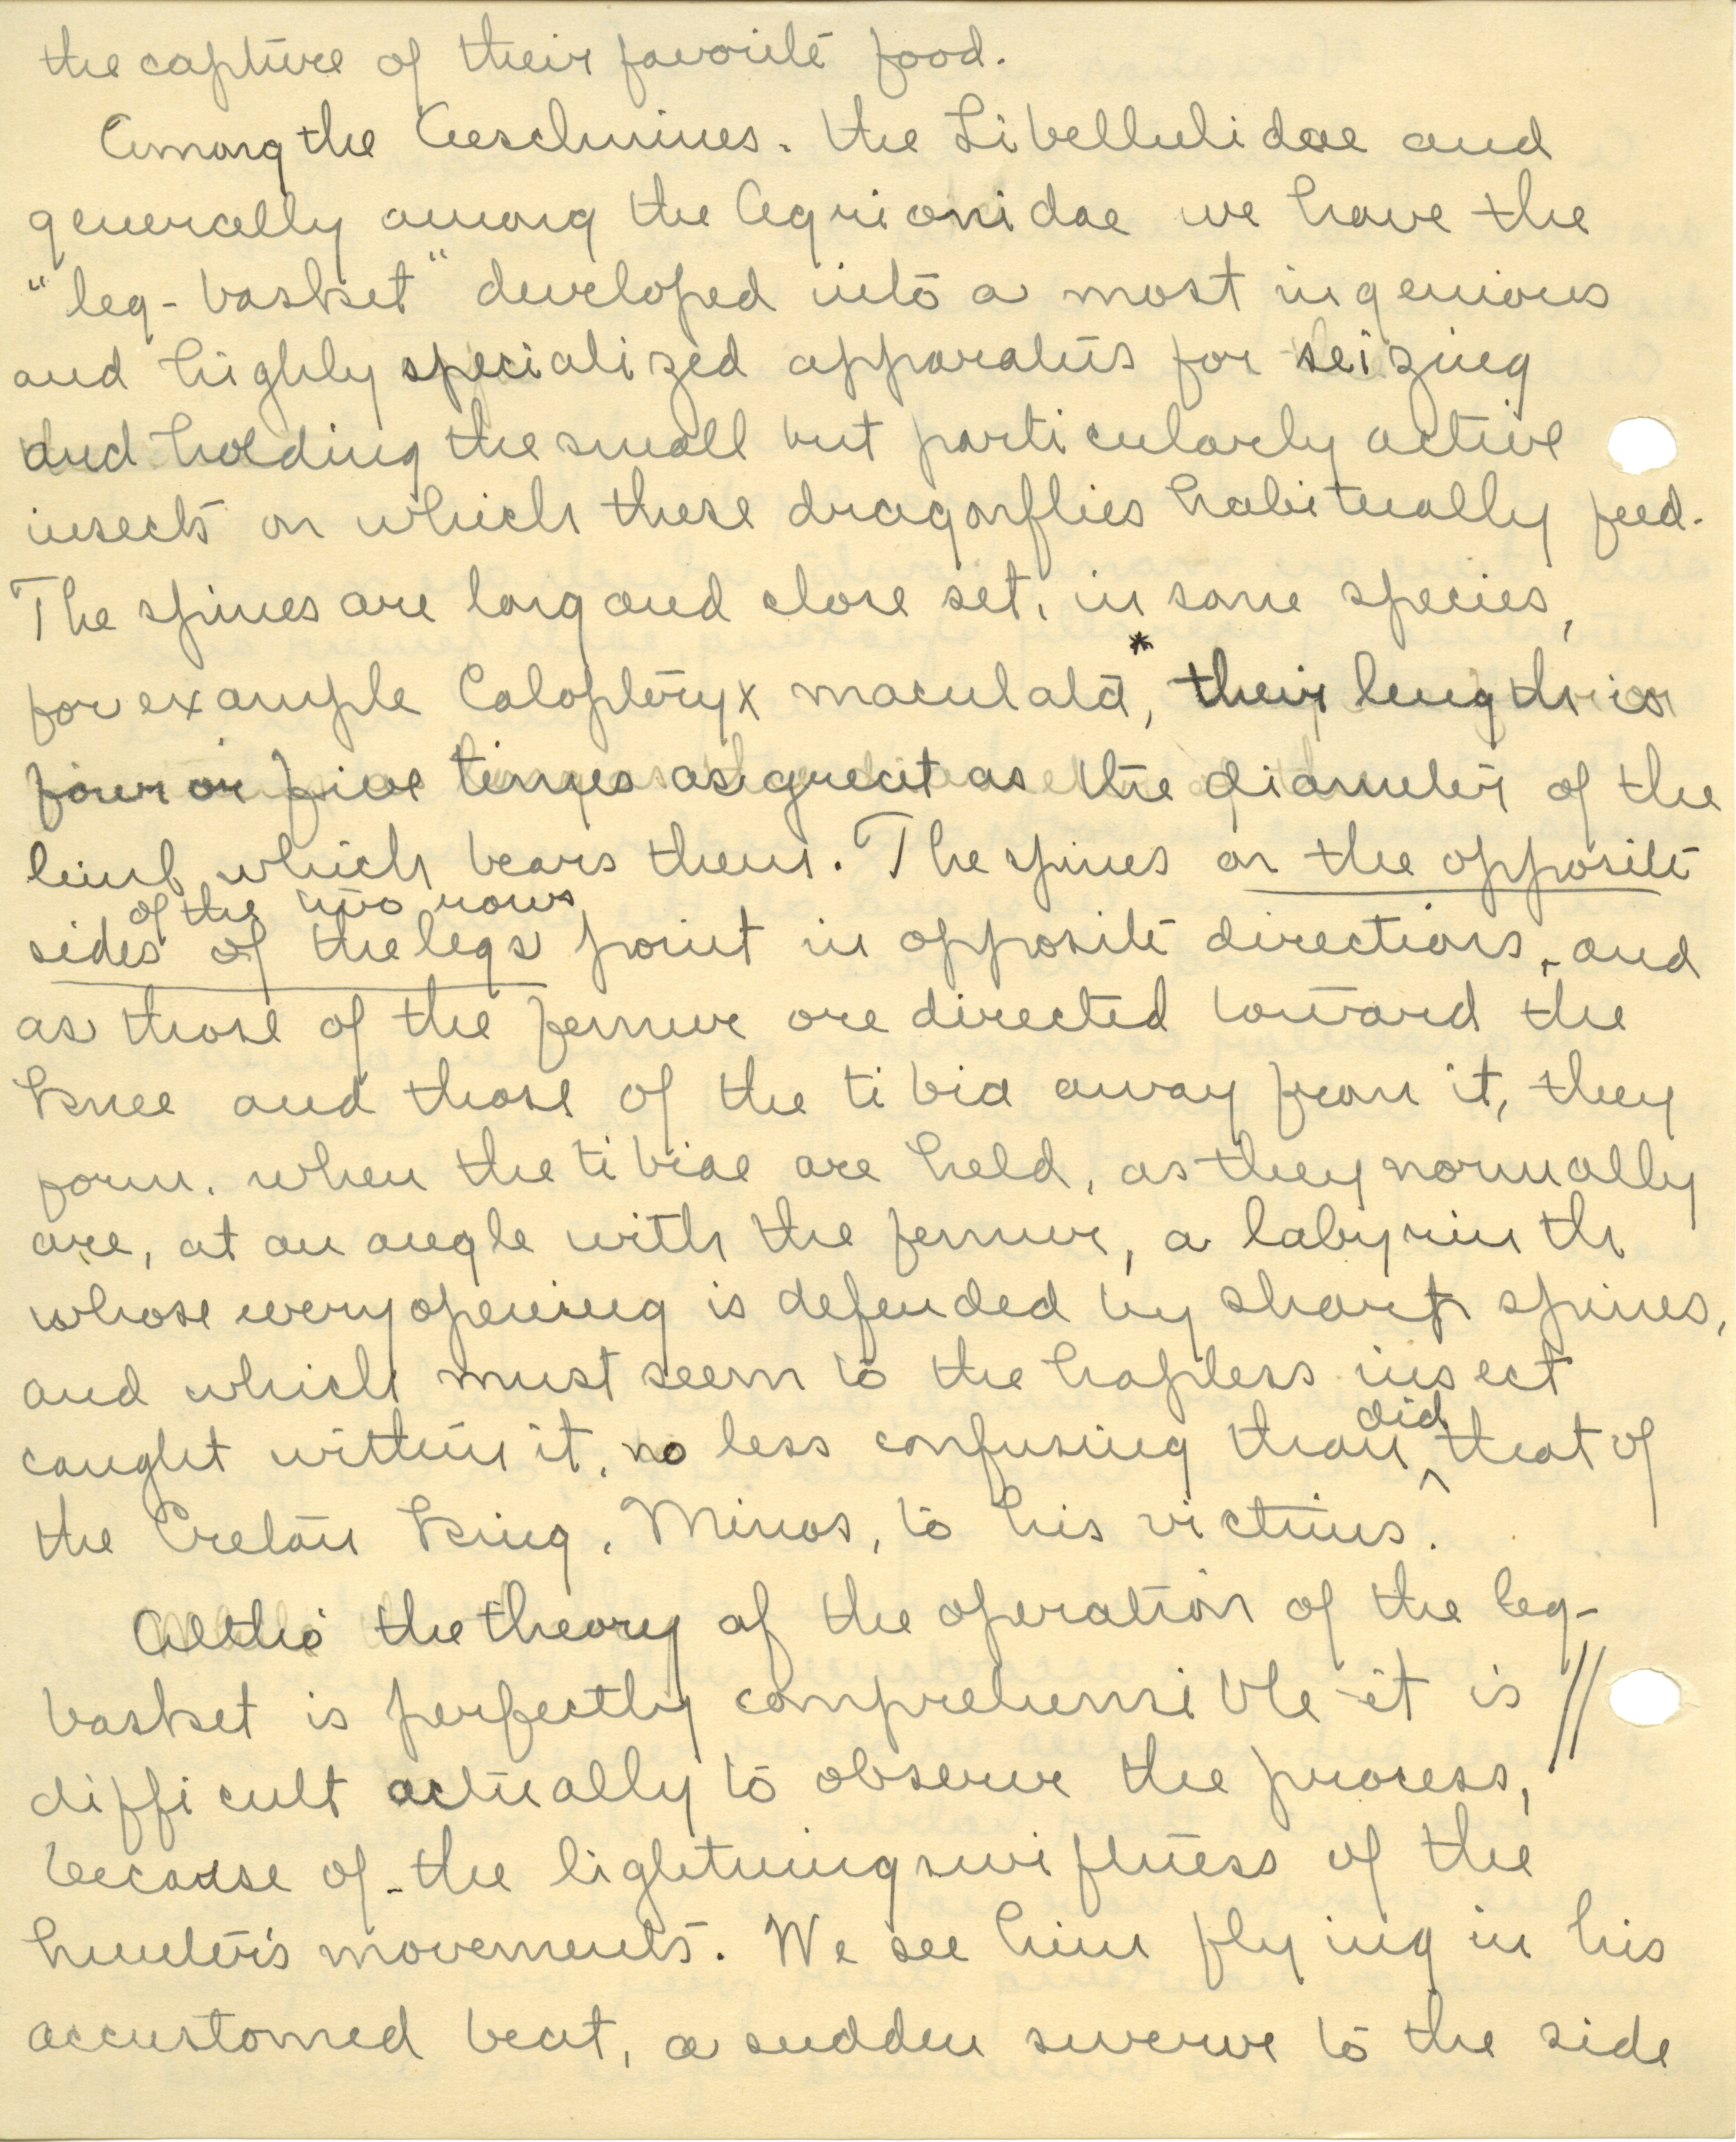 the capture of their favorite food.
Among the Aeschnines, the Libellulidae and
generally among the Agrionidae we have the
"leg-basket" developed into a most ingenious
and highly specialized apparatus for seizing
and holding the small but particularly active
insects on which these dragonflies habitually feed.
The spines are long and close set, in some species,
for example Calopteryx maculata*, their length is
four or five times as great as the diameter of the
limb which bears them. The spines on the opposite
of the two rows
sides of the legs point in opposite directions, and
as those of the femur are directed toward the
knee and those of the tibia away from it, they
form, when the tibiae are held, as they normally
are, at an angle with the femur, a labyrinth
whose every opening is defended by sharp spines,
and which must seem to the hapless insect
caught within it, no less confusing than did that of
the Cretan King, Minos, to his victims.
Altho' the theory of the operation of the leg-
basket is perfectly comprehensible it is //
difficult actually to observe the process,
because of the lightning swiftness of the
hunter's movements. We see him flying in his
accustomed beat, a sudden swerve to the side